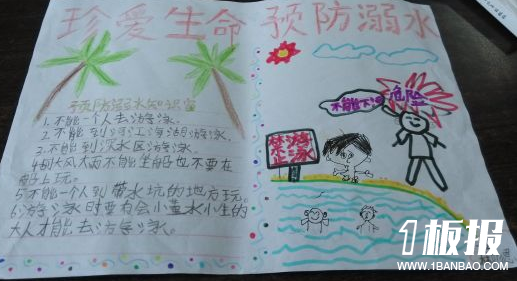 珍爱生命 预防溺水
预防溺水知识
1.不能一个人去游泳.
2.不能到河江海湖游泳.
3.不能到深水区游泳.
4.刮大风大雨不能坐船也不要在
船上玩.
5不能一个人到带水坑的地方玩.
6.游泳时要有会小孟水小生的
大人才能去游泳.
不能下水
危险
禁止
游泳
1板报
WWW.1BANBAO.COM